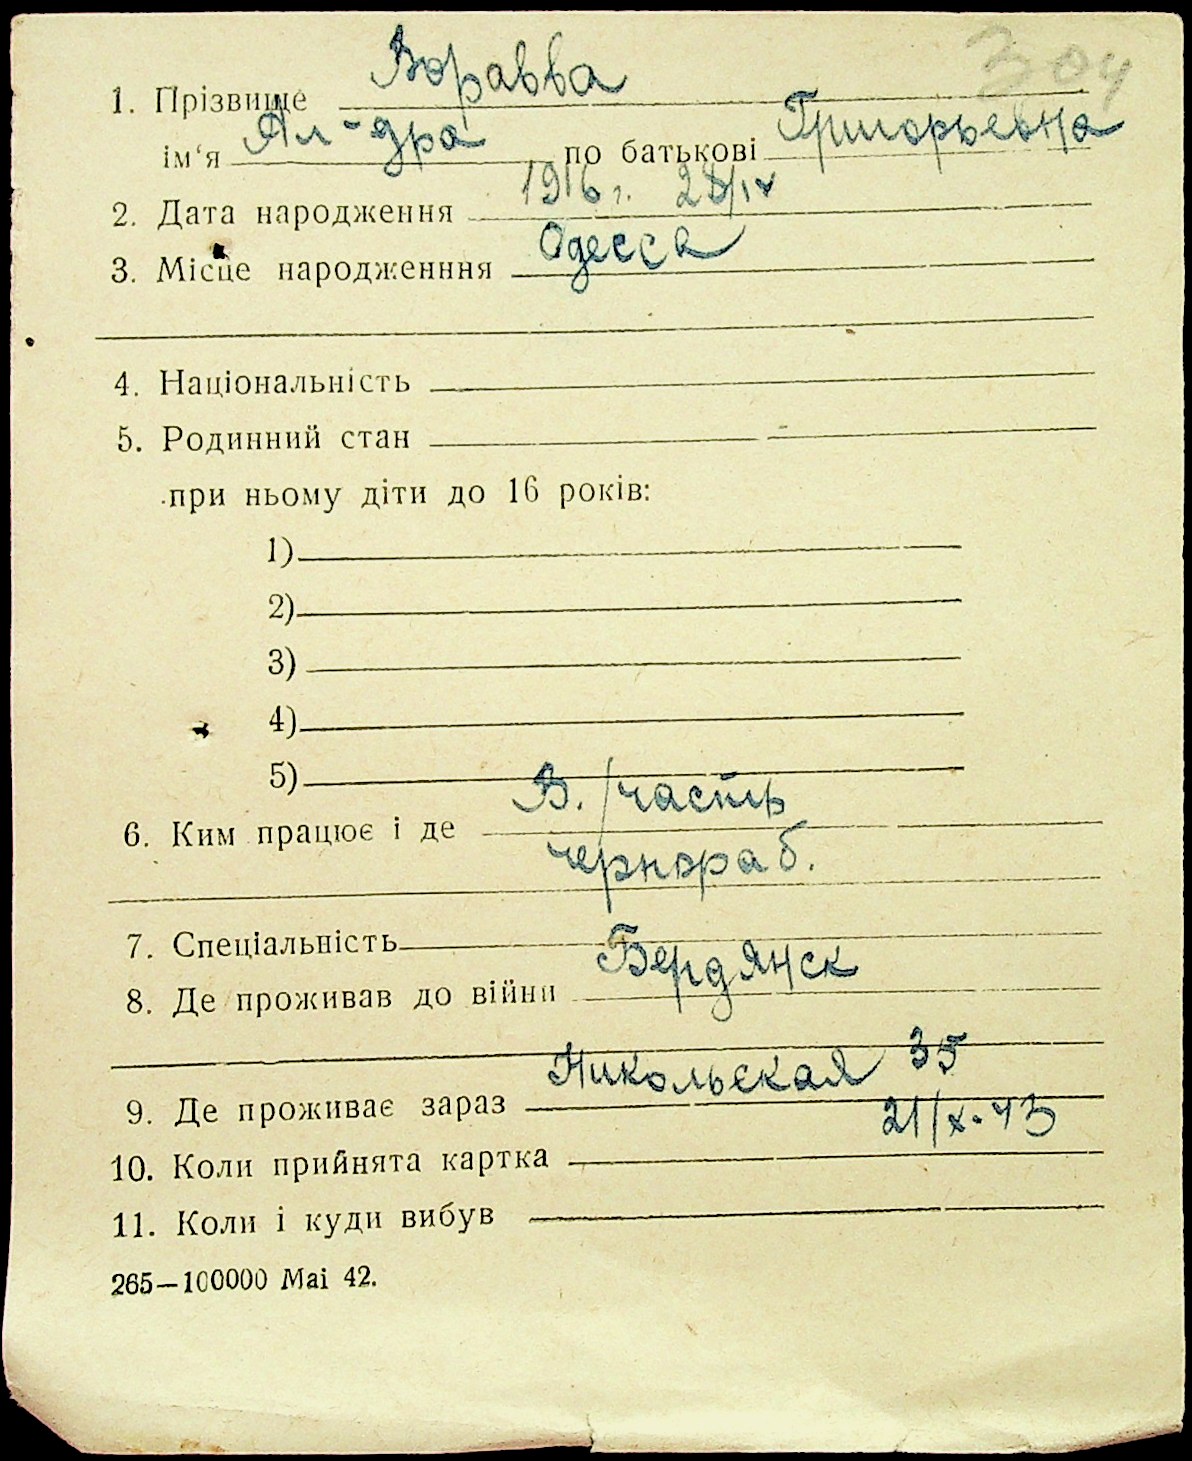 304
1. Прізвище Воравва
ім'я Ал-дра по батькові Григорьевна
2. Дата народження 1916 г. 28/IV
3. Місце народженння Одесса
4. Національність
5. Родинний стан
при ньому діти до 16 років:
1)
2)
3)
4)
5)
6. Ким працює і де В. часть
чернораб.
7. Спеціальність
8. Де проживав до війни Бердянск
9. Де проживає зараз Никольская 35
10. Коли прийнята картка 21/X-43
11. Коли і куди вибув
265—100000 Mai 42.